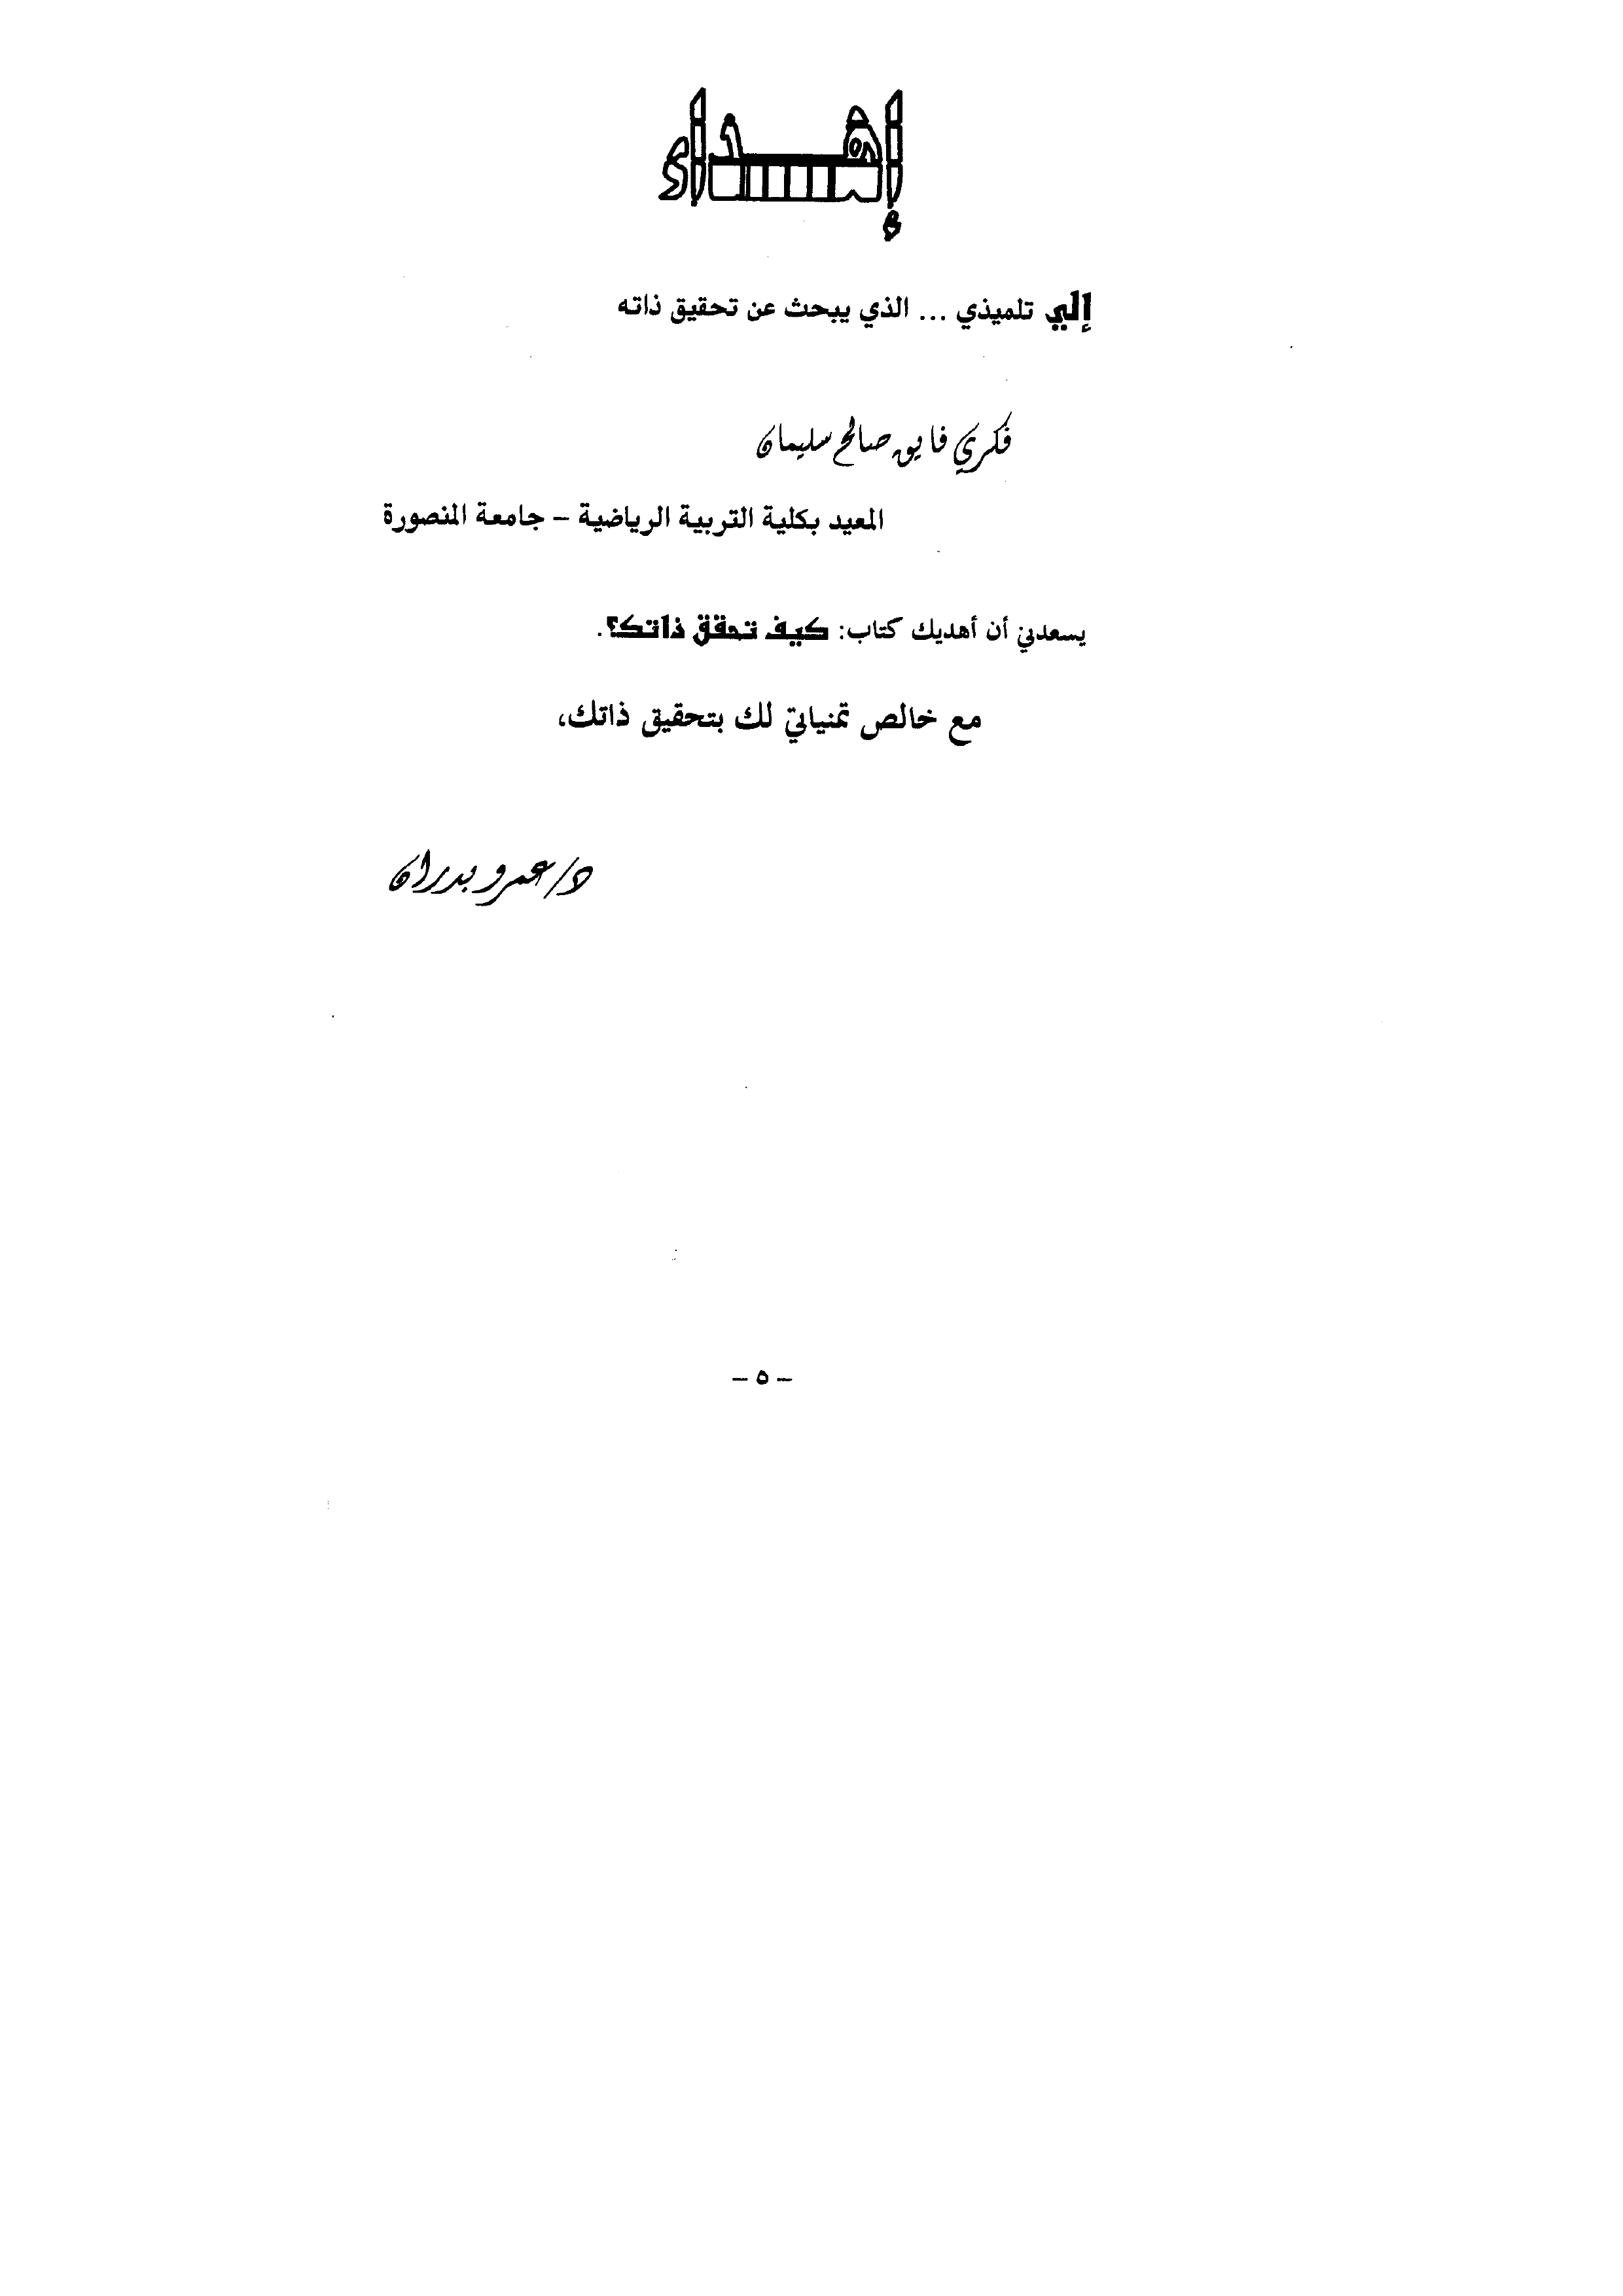 إهـــداء
إلي تلميذي ... الذي يبحث عن تحقيق ذاته
فكري فايق صالح سليمان
المعيد بكلية التربية الرياضية – جامعة المنصورة
يسعدني أن أهديك كتاب: كيف تحقق ذاتك؟.
مع خالص تمنياتي لك بتحقيق ذاتك،
د/عمرو بدران
– ٥ –